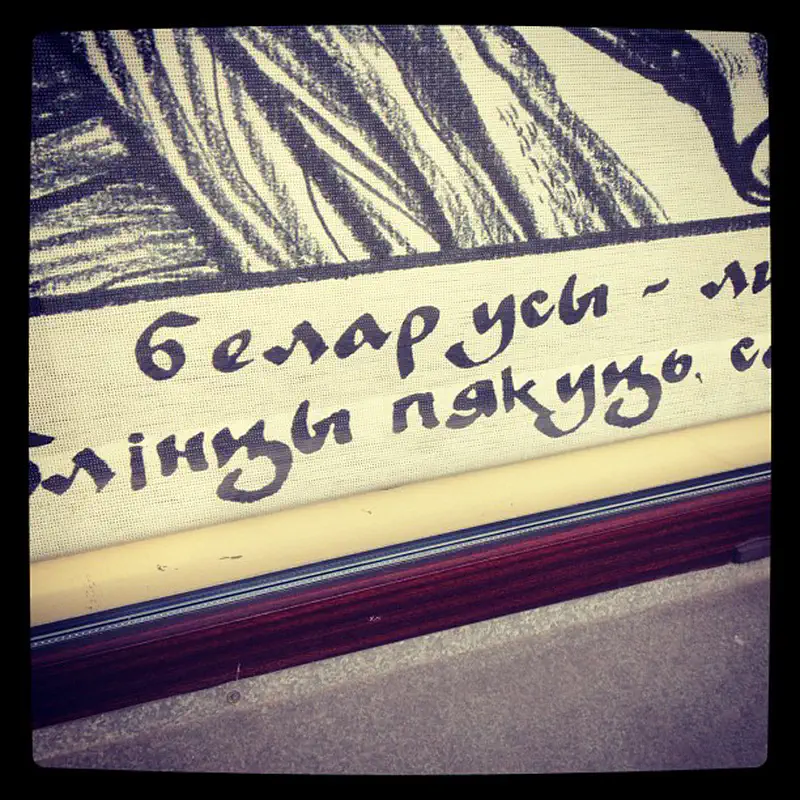 беларусы -
блінцы пякуць.